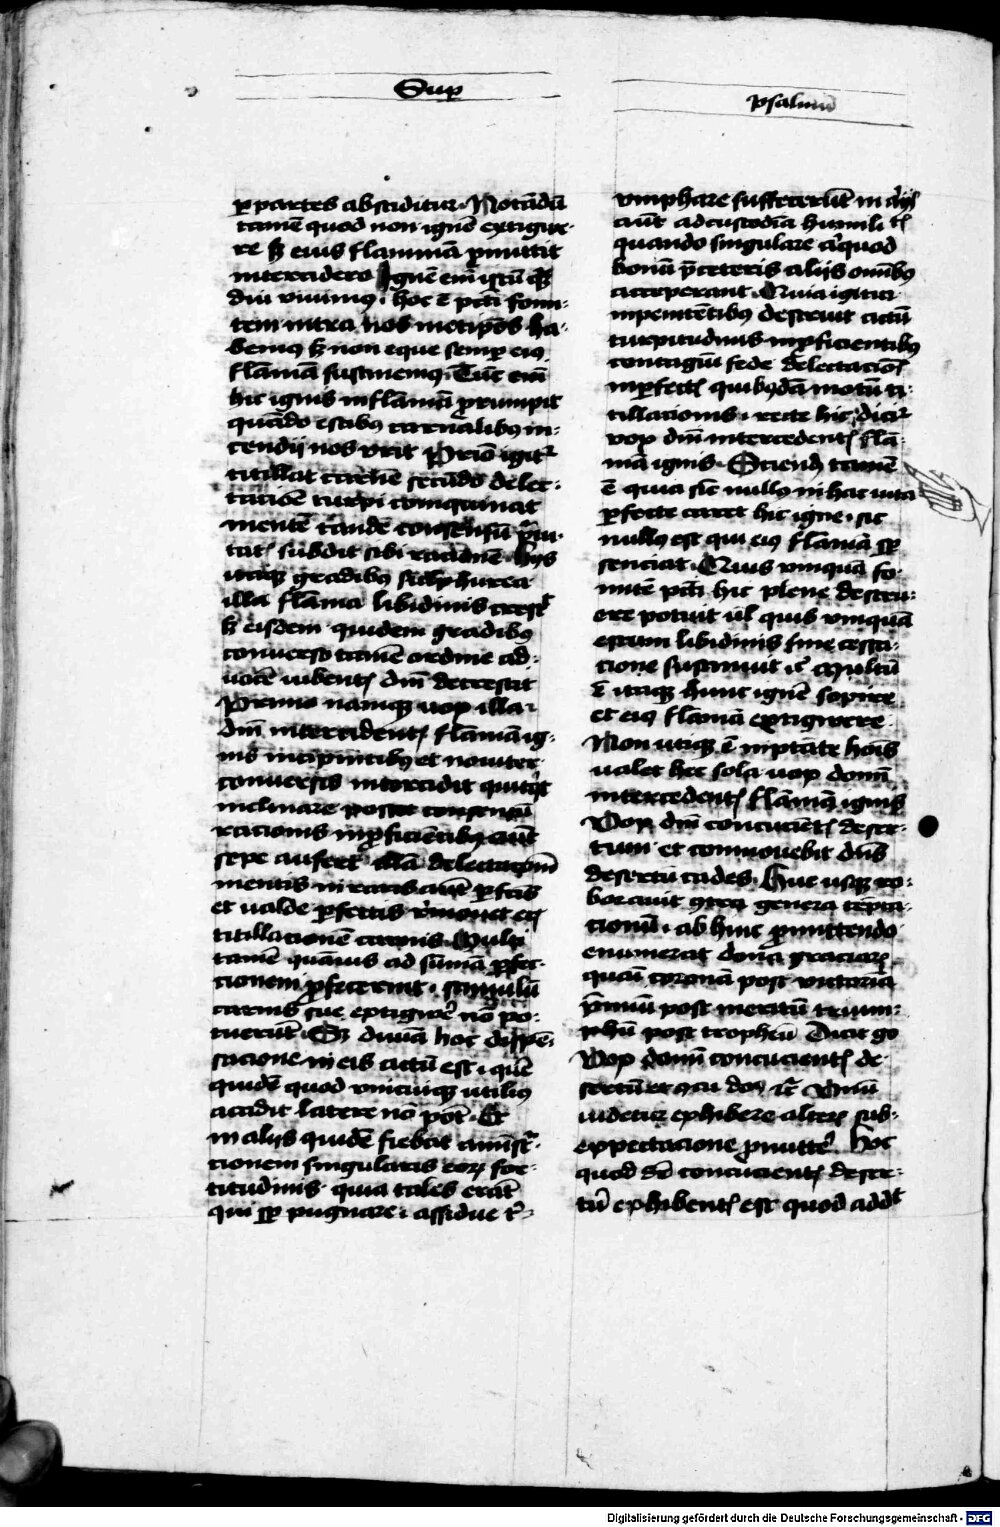 Sup
psalmū
p partes absciditur. Notādū
tamē quod non ignē extigwe-
re sꝫ eius flammā pmittit
intercidero Ignē em̄ istū qͣꝫ
diu viuimꝰ. hoc ē pcti fomi-
tem intra nos metipōs ha-
bemꝰ sꝫ non eque semp eiꝰ
flāmā sustinemꝰ. Tūc em̄
hic ignis in flāmā prumpit
quādo estibꝰ carnalibꝰ in-
cendij nos vrit Prīo igitᷣ
titillat carnē secūdo delec-
tacioē turpi coinquinat
mentē tandē consensū
subdit sibi racionē. hijs
itaqꝫ gradibꝰ sulphurea
illa flāma libidinis cresc̄
sꝫ eisdem quidem gradibꝰ
conuerso tamē ordine ad-
uocē iubentꝭ dm̄ decrescit
Primo namqꝫ vox illa
dm̄ intercidentꝭ flāmā ig-
nis incipientibꝰ et nouiter
conuersis intercidit
inclinare posset consensū
racionis inpficiētibꝰ aūt
sepe aufert illā delectacōnē
mentis in raris aūt pfcis
et valde pfectis rͥmouet eciā
titillacionē carnis. Multi
tamē quāuis ad sūmā pfec-
cionem pfecerint. stimulū
carnis sue extigwͥe nō po-
tuerūt. Sꝫ diuīa hoc dispē-
sacione in eis actū est. quē
quidē quod vnicuiqꝫ utiliꝰ
accidit latere nō pot̄. Et
in alijs quidē fiebat
cionem singularis eorꝫ for-
titudinis quia tales erāt
qui sp pugnare. assidue tͥ-
vmphare suffecerūt in alijs
aūt ad custodiā humilitꝭ
quando singulare aliquod
bonū pͥceteris alijs om̄ibꝰ
acceperant. Quia igitur
inpenitētibꝰ destruit actū
turpitudinis inpficientibꝰ
contagiū fede delectacioīs
inpfectꝭ quibꝰdā motū ti-
tillacionis. recte hic dicitᷣ
vox dm̄ intercedentꝭ flā-
mā ignis. Sciendū tamē
ē quia sic nullꝰ in hac vita
pfecte caret hic igne. sic
nullꝰ est qui eiꝰ flāmā sp
senciat. Quis vmquā fo-
mitē pcti hic plene destru-
ere potuit ul̄ quis vmquā
estum libidinis sine cessa-
cione sustinuit
ē itaqꝫ hunc ignē sopire
et eiꝰ flāmā extigwere
Non utiqꝫ ē in ptāte hoīs
valet hec sola vox domī
intercedentꝭ flāmā ignis
Vox dm̄ concucientꝭ deser-
tum et commouebit dn̄s
desertū cades. Huc usqꝫ ro-
borauit genera tēpta-
cionū. ab hinc pmittendo
enumerat dona graciarꝫ
quasi coronā post victoriā
pͥmiū post meritū trium-
phū post tropheū Dicit gͦ
Vox domī concucientꝭ de-
sertū et Vnum
videtur exhibere alterꝫ sub-
exspectacione pmittere Hoc
quod concucientꝭ deser-
tū exhibentꝭ est quod addit